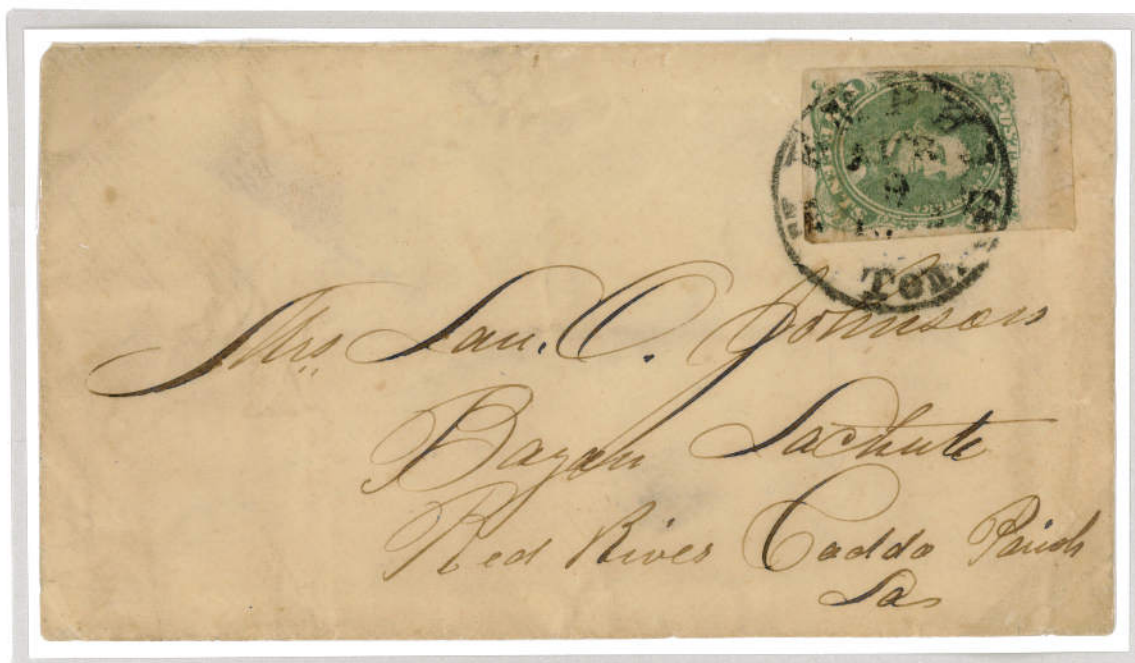 Ten.
Mrs. Lau. C. Johnson
Bayou Lachute
Red River Caddo Parish
La